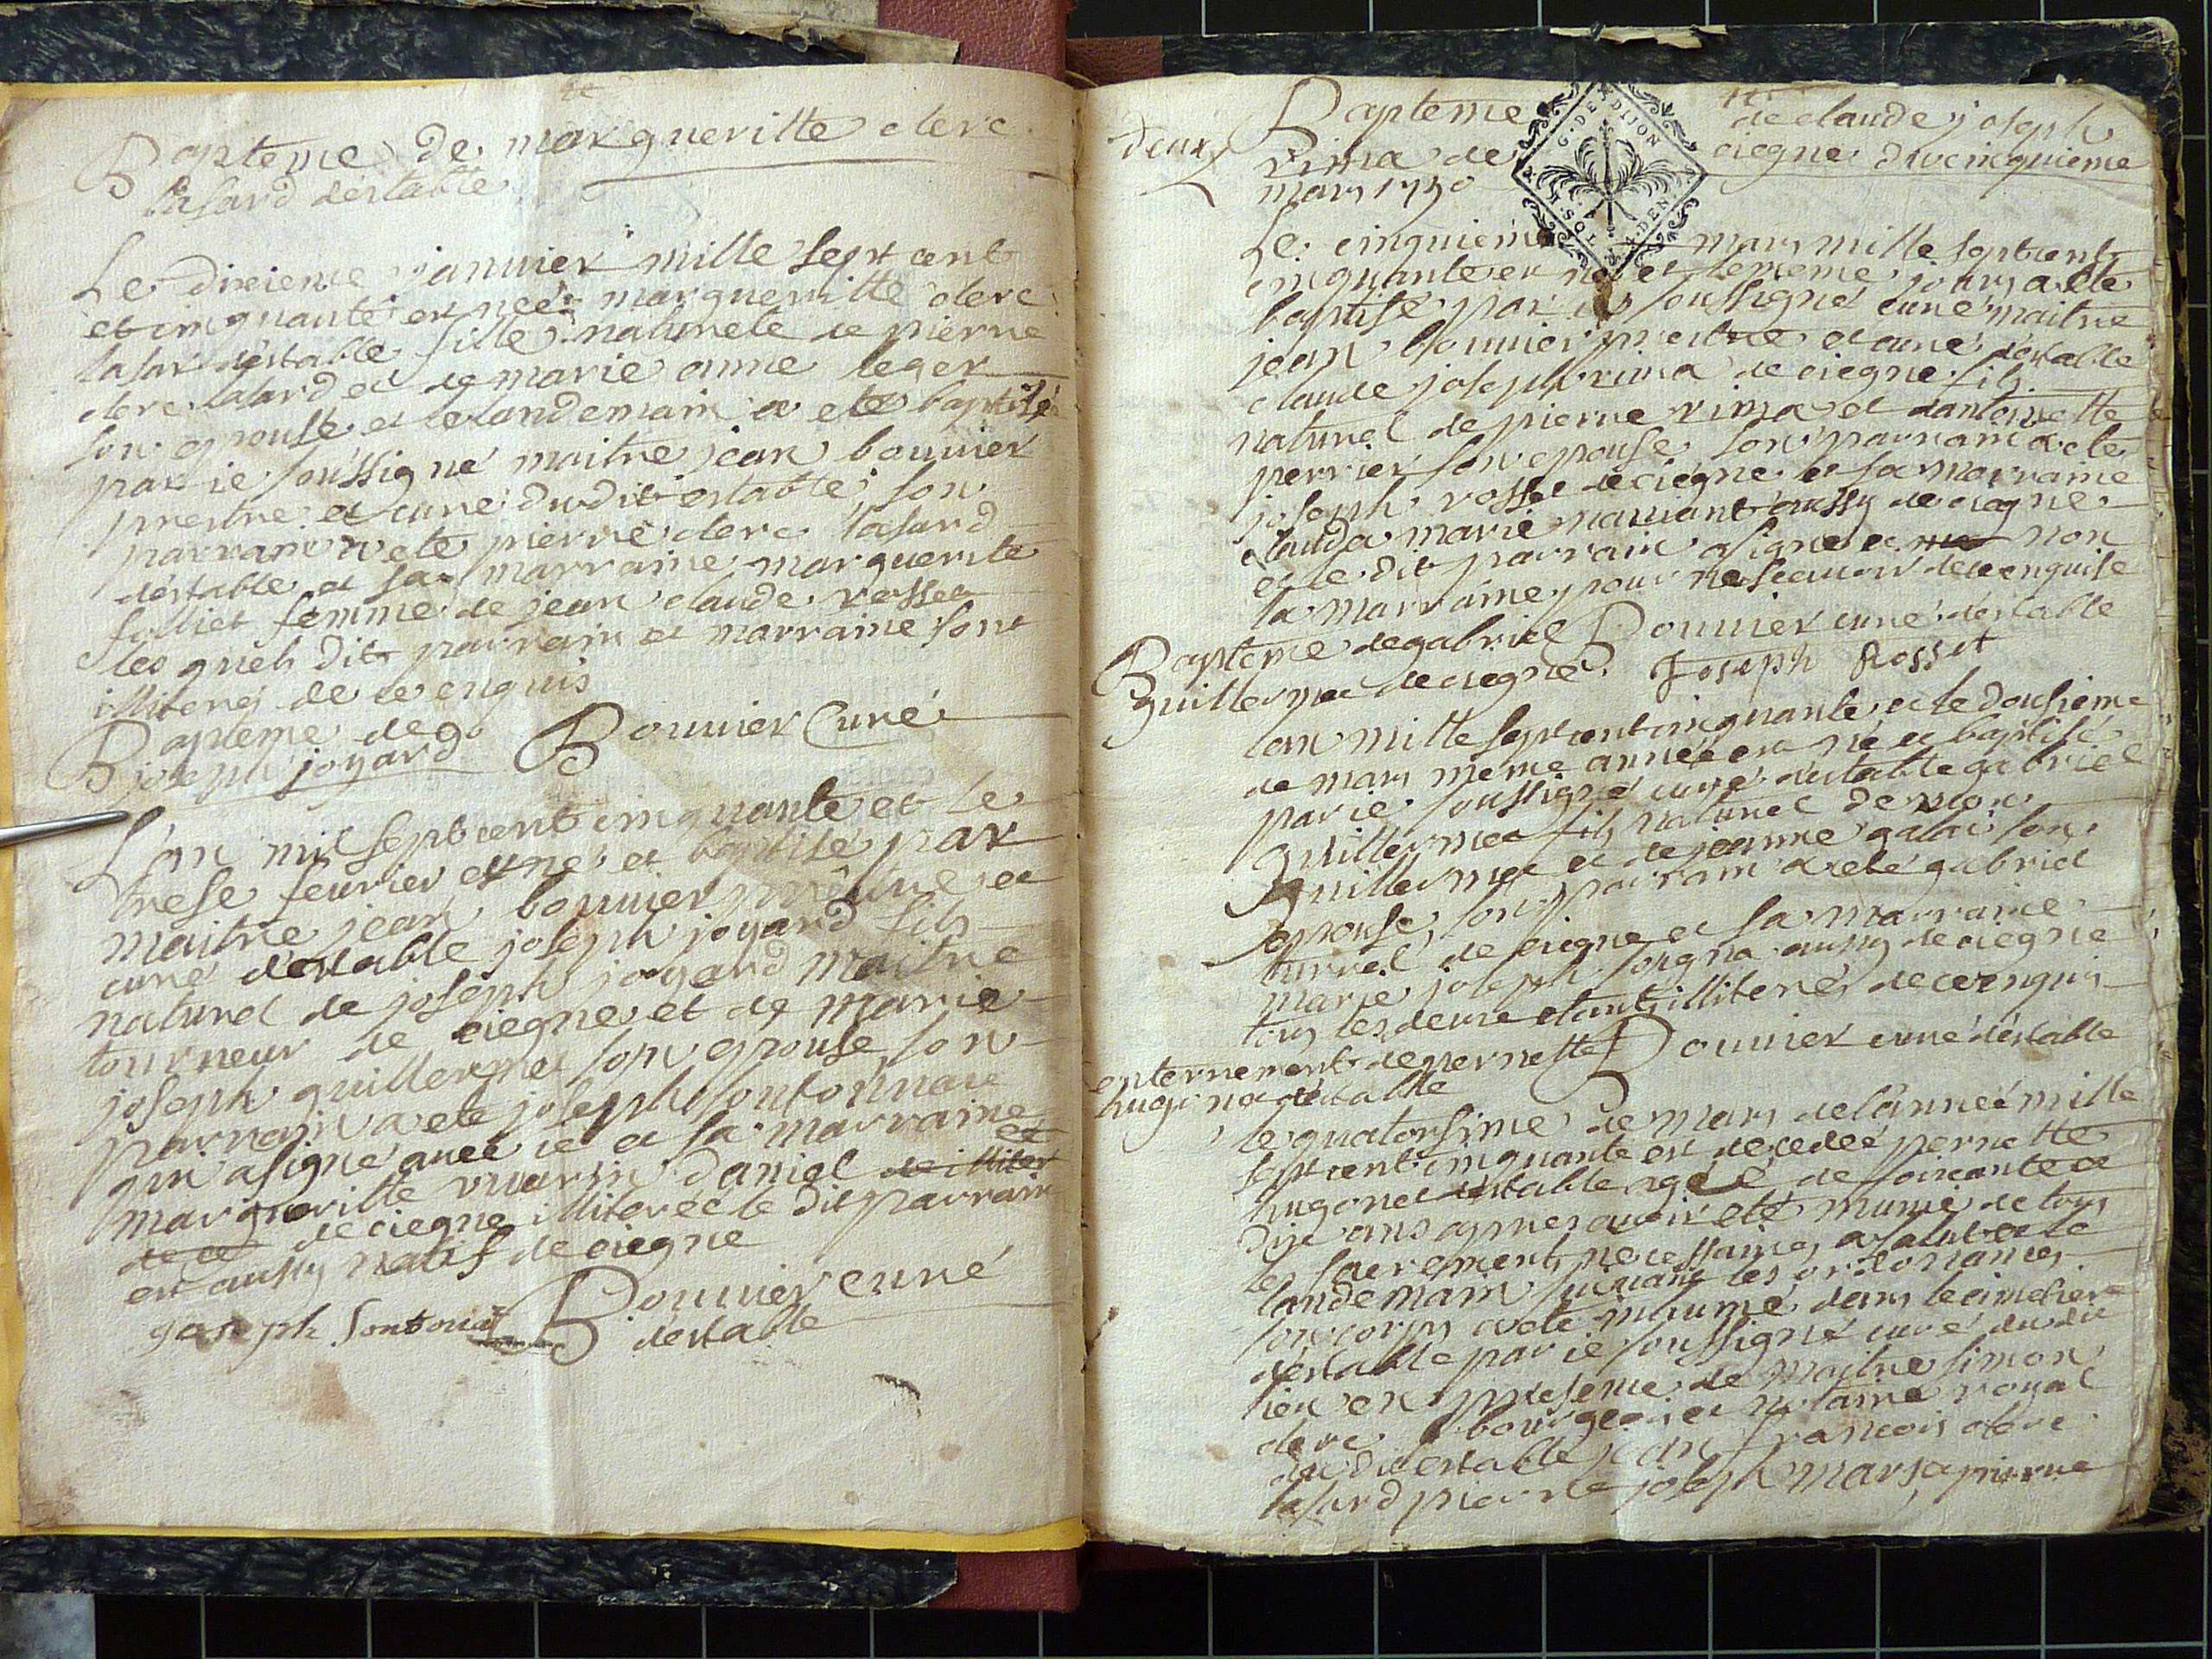 Bapteme de margueritte clerc
lasard d'estable
Le dixieme januier mille sept cent
et cinquante est neé margueritte clerc
lasar d'estable fille naturele de pierre
clerc lasard et de marie anne leger
son epouse et le landemain a eté baptisé
par ie soussigné maitre jean bouuier
prestre et curé dudit estable, son
parrain a eté pierre clerc lasard
d'estable et sa marraine marguerite
folliet femme de jean claude rosset
lesquels dits parrain et marraine sont
illiterés de ce enquis
Bouuier Curé
Bapteme de
joseph joyard
L'an mil sept cent cinquante et le
trese feurier est né et baptisé par
maitre jean bouuier prêtre et
curé d'estable joseph joyard fils
naturel de joseph joyard maitre
tourneur de ciegne et de marie
joseph guillermet son epouse, son
parrain a eté joseph sontonnat
qui a signé auec ie et sa marraine
margueritte vuarin daniel de illiter et
de ce de ciegne illiterée le dit parrain
est aussy natif de ciegne
Bouuier curé
d'estable
joseph Sontonat
deux
Bapteme de claude joseph
rima de ciegne du cinquieme
mars 1750
G. DE DIJON
Le cinquieme mars mille sept cent
cinquante est né et le meme jours a eté
baptisé par ie soussigné curé maitre
jean bouuier prestre et curé d'estable
claude joseph rima de ciegne fils
naturel de pierre rima et d'antoinette
perrier son epouse, son parrain a eté
joseph rosset de ciegne et sa marraine
clauda marie mauiant aussy de ciegne
et le dit parrain a signé et non
la marraine pour ne scauoir de ce enquise
Bouuier curé d'estable
Joseph Rosset
Bapteme de gabriel
guillermet de ciegne
lan mille sept cent cinquante et le dousieme
de mars meme année est né et baptisé
par ie soussigné curé d'estable gabriel
guillermet fils naturel de
guillermet et de jeanne galai son
epouse, son parrain a eté gabriel
turrel de ciegne et sa marraine
marie joseph soigna aussy de ciegne
tous les deux etants illiterés de ce enquis
Bouuier curé d'estable
enterrement de pernette
hugonet d'estable
le quatorsime de mars de l'année mille
sept cent cinquante est decedeé pernette
hugonet d'estable ageé de soixante et
dix ans apres auoir eté munie de tous
les sacrements necessaires a salut et le
landemain suiuant les ordonances
son corps a eté inhumé dans le cimetier
d'estable par ie soussigné curé du dit
lieu en presence de maitre simon
clerc bourgeois et notaire royal
du dit estable jean francois clerc
lasard pierre joseph marsa pierre